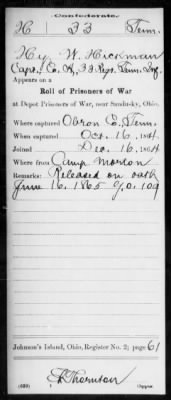 Confederate.
H | 33 | Tenn.
Hy. W. Hickman
Capt., Co. H, 33 Regt. Tenn. Inf.
Appears on a
Roll of Prisoners of War
at Depot Prisoners of War, near Sandusky, Ohio.
Where captured Obion Co, Tenn.
When captured Oct. 16, 1864
Joined Dec. 16, 1864
Where from Camp Morton
Remarks: Released on oath
June 16, 1865 G.O. 109
Johnson's Island, Ohio, Register No. 2; page 61
(639) Thornton
Copyist.